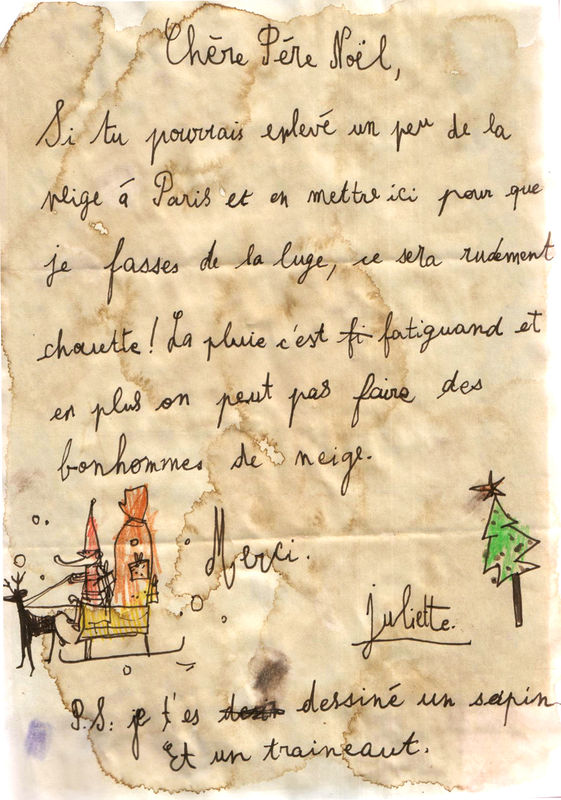 Chère Père Noël,
Si tu pourrais enlevé un peu de la
neige á Paris et en mettre ici pour que
je fasses de la luge, ce sera rudement
chouette! La pluie c'est fi fatiguand et
en plus on peut pas faire des
bonhommes de neige.
Merci.
Juliette.
P.S: je t'es dessiné un sapin
Et un traineaut.